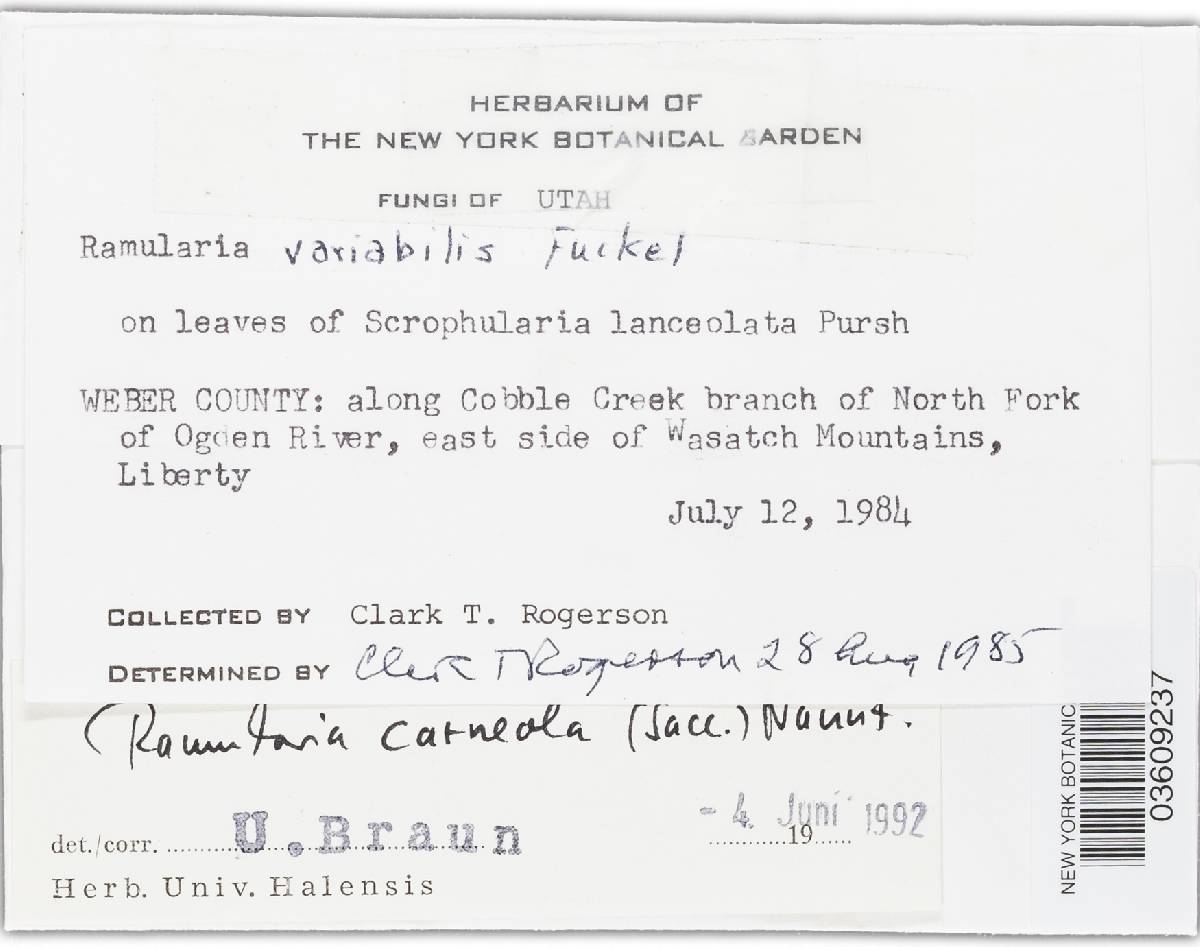 HERBARIUM OF
THE NEW YORK BOTANICAL GARDEN
FUNGI OF UTAH
Ramularia variabilis Fuckel
on leaves of Scrophularia lanceolata Pursh
WEBER COUNTY: along Cobble Creek branch of North Fork
of Ogden River, east side of Wasatch Mountains,
Liberty
July 12, 1984
COLLECTED BY Clark T. Rogerson
DETERMINED BY Clark T Rogerson 28 Aug 1985
Ramularia carneola (Sacc.) Nannf.
- 4. Juni 1992
det./corr. U. Braun 19
Herb. Univ. Halensis
NEW YORK BOTANIC
03609237